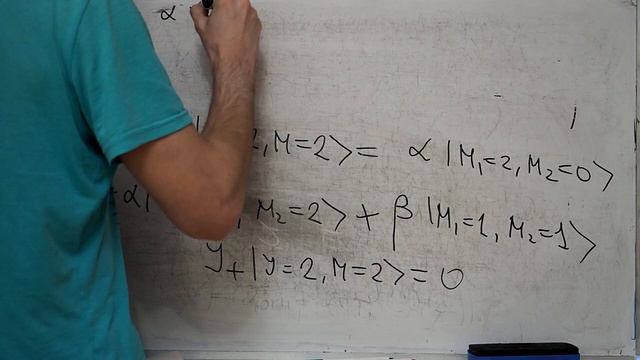 α
2, M=2⟩ = α |M₁=2, M₂=0⟩
+α| M₂=2⟩ + β |M₁=1, M₂=1⟩
J₊|J=2, M=2⟩=0